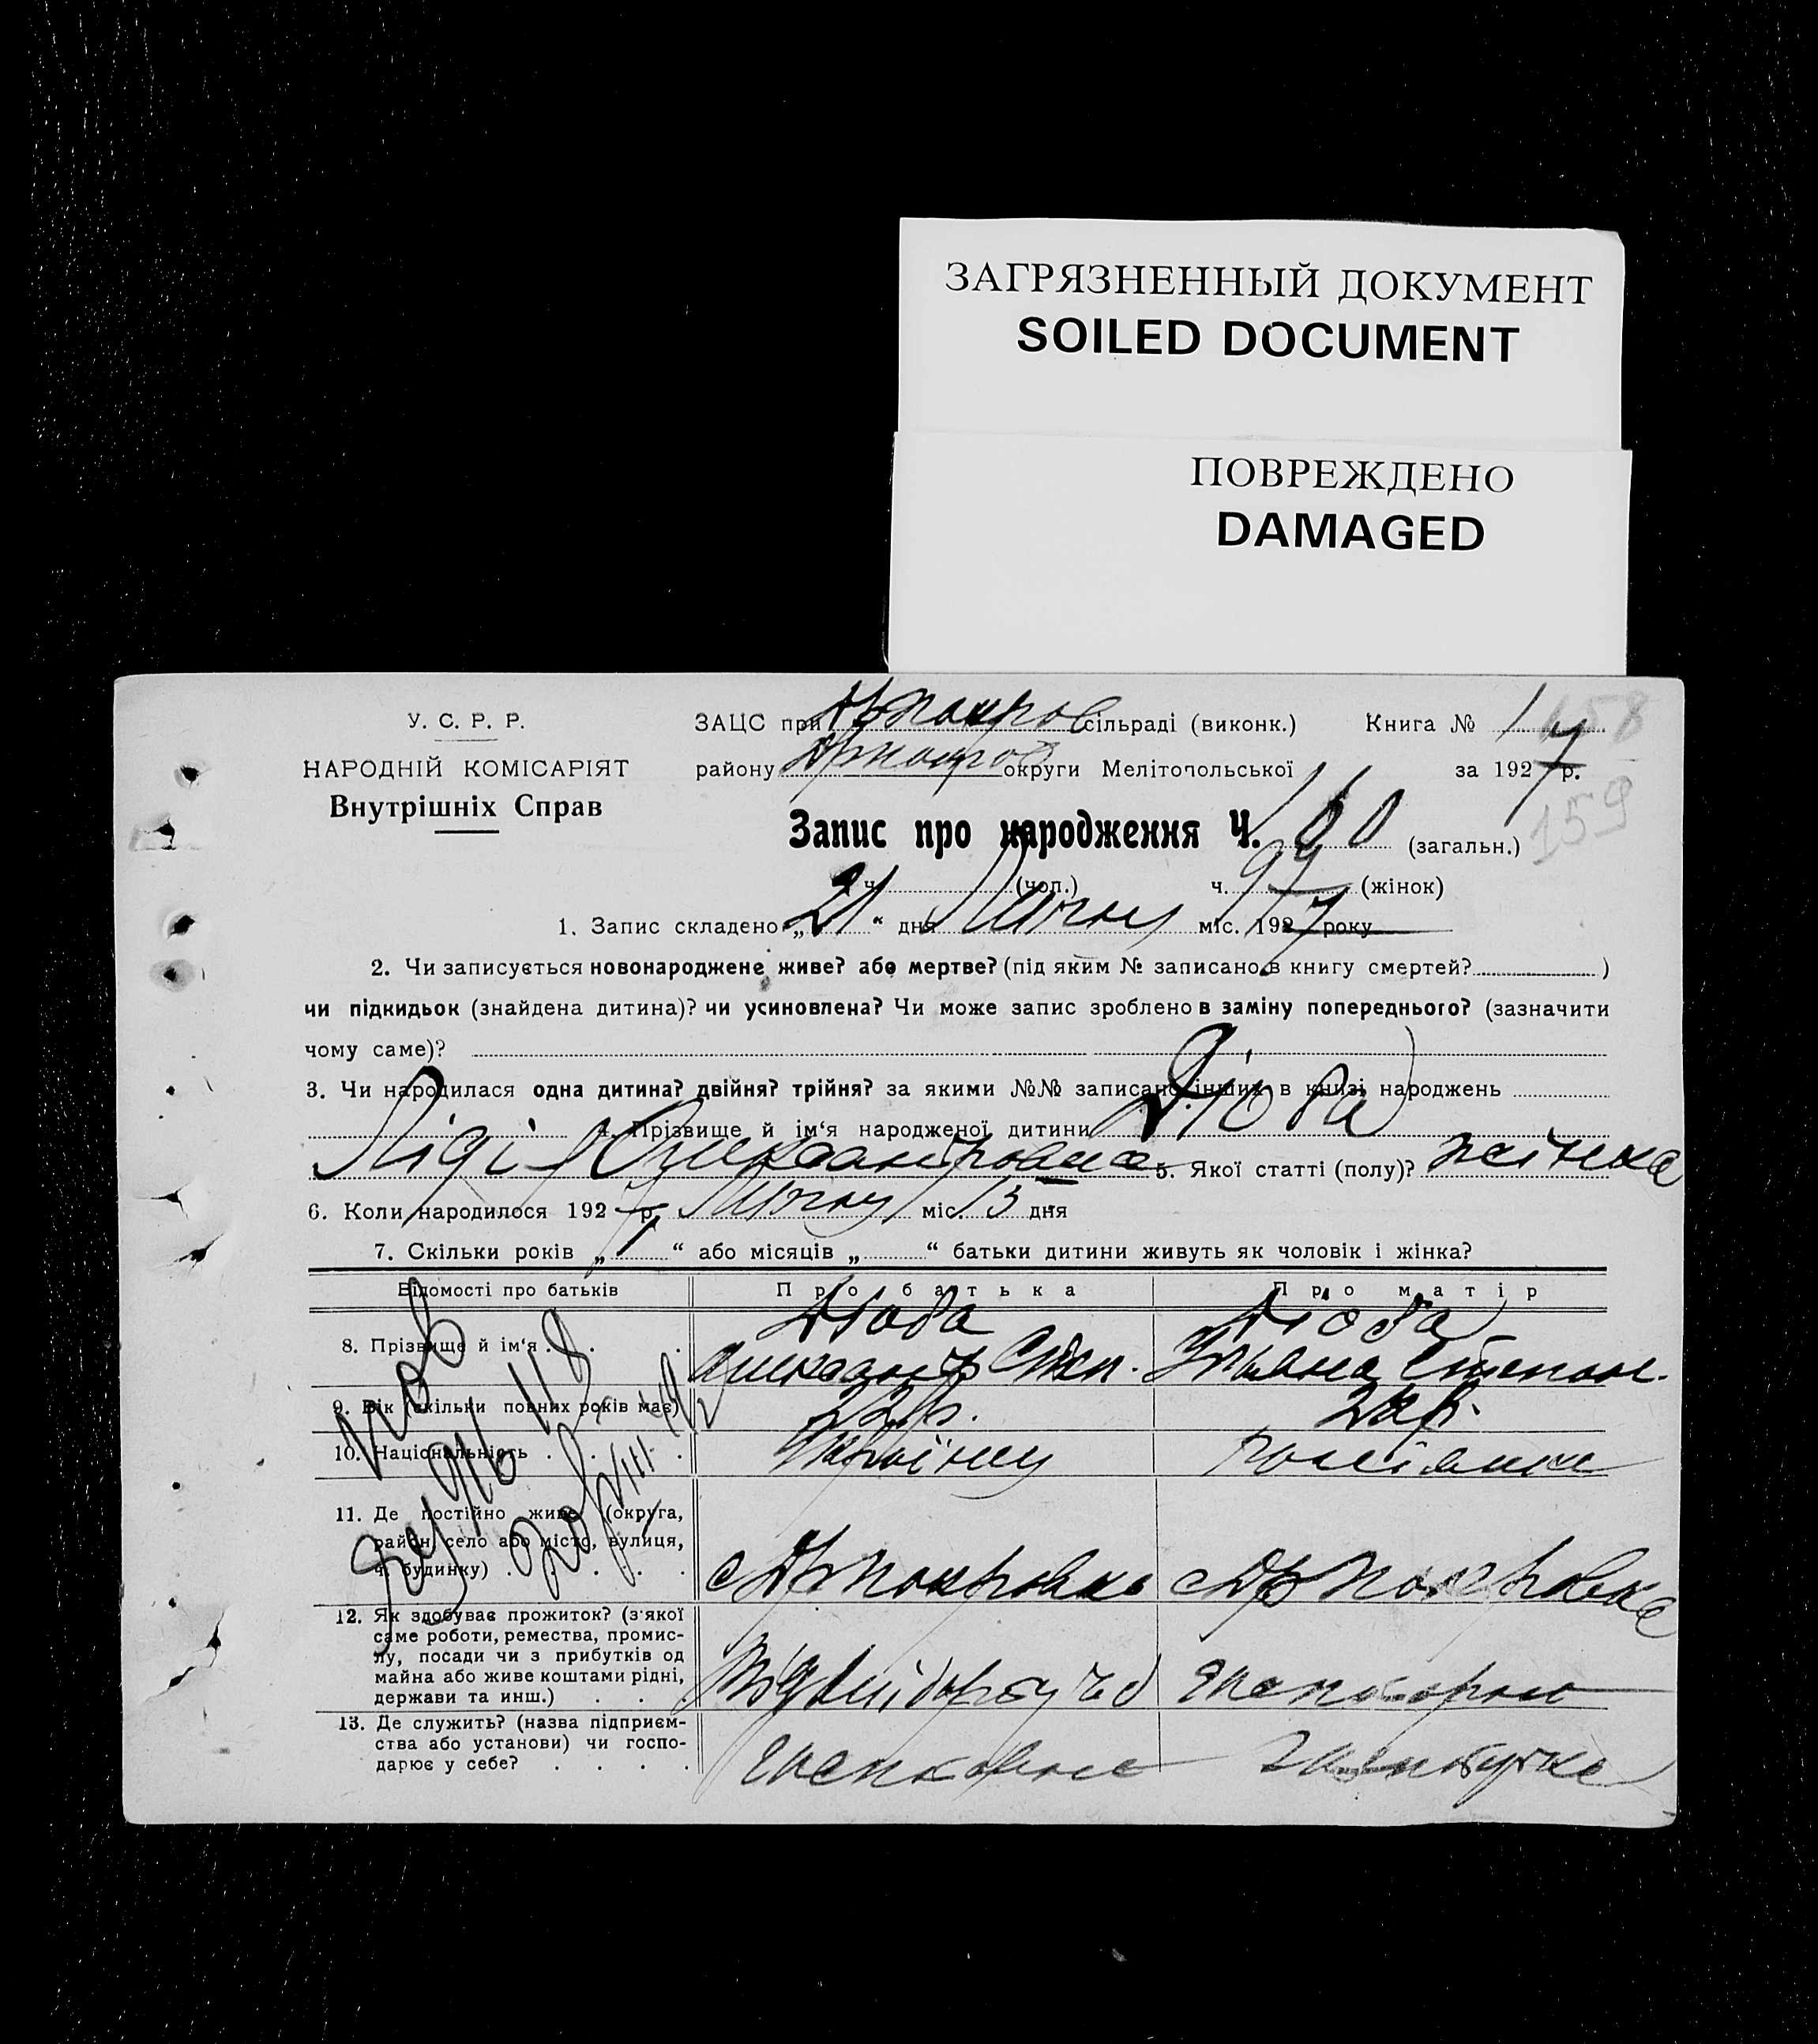 ЗАГРЯЗНЕННЫЙ ДОКУМЕНТ
SOILED DOCUMENT
ПОВРЕЖДЕНО
DAMAGED
У. С. Р. Р.
НАРОДНІЙ КОМІСАРІЯТ
Внутрішніх Справ
ЗАЦС при сільраді (виконк.) Книга № 1 158
району округи Мелітопольської за 1927 р.
159
Запис про народження Ч. 160 (загальн.)
ч. (чол.) ч. (жінок)
1. Запис складено „21“ дня Лютого міс. 1927 року
2. Чи записується новонароджене живе? або мертве? (під яким № записано в книгу смертей? )
чи підкидьок (знайдена дитина)? чи усиновлена? Чи може запис зроблено в заміну попереднього? (зазначити
чому саме)?
3. Чи народилася одна дитина? двійня? трійня? за якими №№ записано інших в книзі народжень
4. Прізвище й ім‘я народженої дитини Дзюба
Лідія Олександровна 5. Якої статті (полу)? жіноча
6. Коли народилося 1927 р. Лютого міс. 13 дня
7. Скільки років „1“ або місяців „ “ батьки дитини живуть як чоловік і жінка?
Відомості про батьків Про батька Про матір
8. Прізвище й ім‘я . . . Дзюба Дзюба
Олександр Степ. Уляна Степан.
9. Вік (скільки повних років має) 22 р.
10. Національність . . . Україну росіянка
11. Де постійно живе (округа,
район, село або місто, вулиця,
ч. будинку) . . . . с Дн Покровка с Дн Покровка
12. Як здобуває прожиток? (з якої
саме роботи, ремества, промис-
лу, посади чи з прибутків од
майна або живе коштами рідні,
держави та инш.) . . .
13. Де служить? (назва підприєм-
ства або установи) чи госпо-
дарює у себе? . . . .